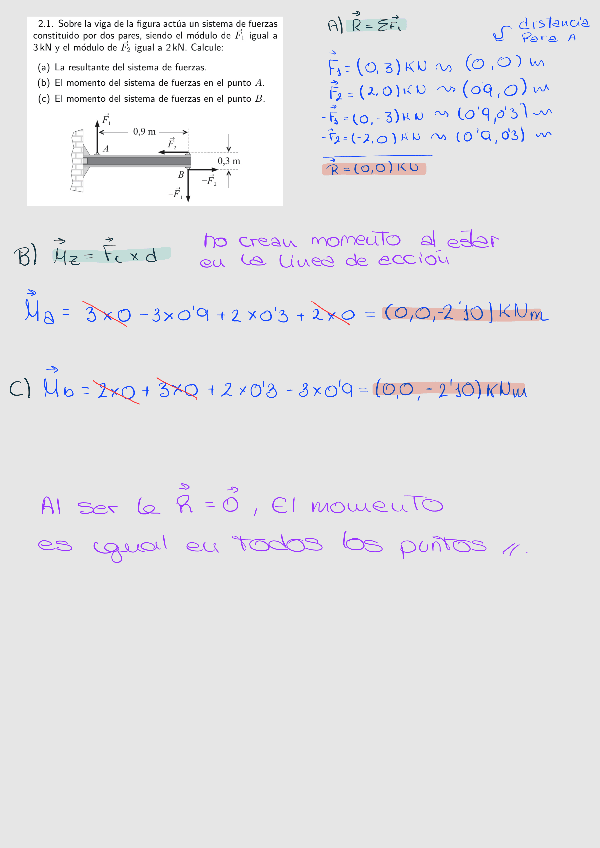 2.1. Sobre la viga de la figura actúa un sistema de fuerzas
constituido por dos pares, siendo el módulo de F⃗₁ igual a
3 kN y el módulo de F⃗₂ igual a 2 kN. Calcule:
(a) La resultante del sistema de fuerzas.
(b) El momento del sistema de fuerzas en el punto A.
(c) El momento del sistema de fuerzas en el punto B.
F⃗₁
0,9 m
A
F⃗₂
0,3 m
B
−F⃗₂
−F⃗₁
A) R⃗ = ΣF⃗i
distancia
para A
F⃗₁ = (0,3) KN ~ (0,0) m
F⃗₂ = (2,0) KN ~ (09,0) m
-F₁ = (0,-3) KN ~ (0'9,0'3) m
-F₂ = (-2,0) KN ~ (0'9,0'3) m
R⃗ = (0,0) KN
B) M⃗z = F⃗i x d⃗
no crean momento al estar
en la línea de acción
M⃗a = 3x0 - 3x0'9 + 2x0'3 + 2x0 = (0,0,-2'10) KNm
C) M⃗b = 2x0 + 3x0 + 2x0'3 - 3x0'9 = (0,0,-2'10) KNm
Al ser la R⃗ = 0⃗, El momento
es igual en todos los puntos //.